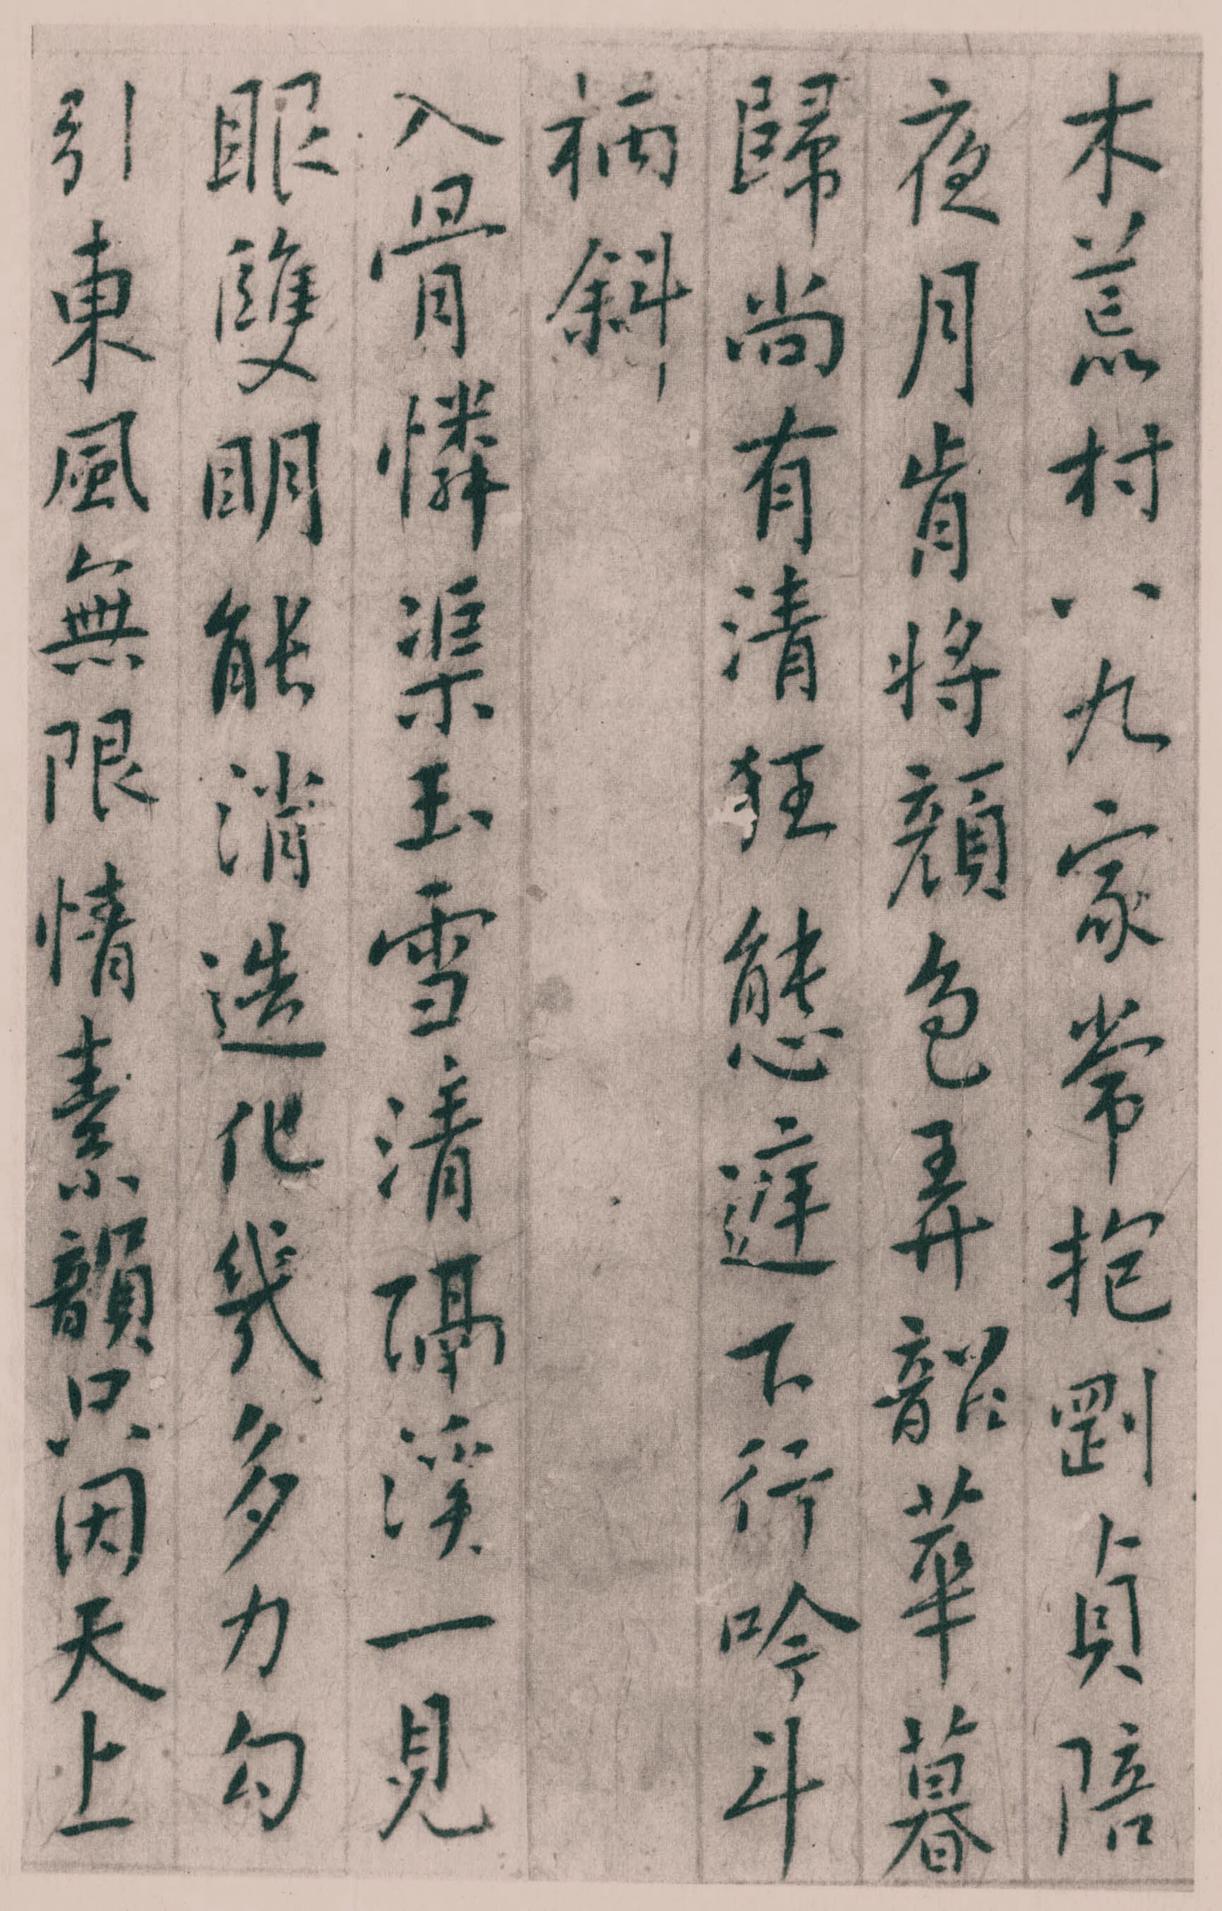 木荒村八九家常抱剛貞陪
夜月肯將顏色弄韶華暮
歸尚有清狂態遲下行吟斗
柄斜
入骨憐渠玉雪清隔溪一見
眼雙明能消造化幾多力勾
引東風無限情素韻只因天上